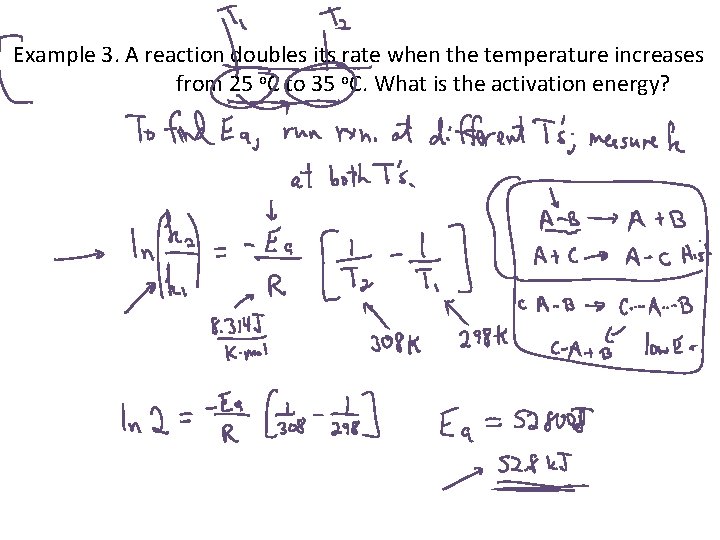 T₁ T₂
Example 3. A reaction doubles its rate when the temperature increases
from 25 °C to 35 °C. What is the activation energy?
To find Ea, run rxn. at different T's; measure k
at both T's.
ln(k₂/k₁) = -Ea/R [1/T₂ - 1/T₁]
8.314J/K·mol 308K 298K
A-B → A + B
A + C → A-C
C A-B → C---A---B
C-A + B low E
ln 2 = -Ea/R [1/308 - 1/298]
Ea = 52800J
528 kJ